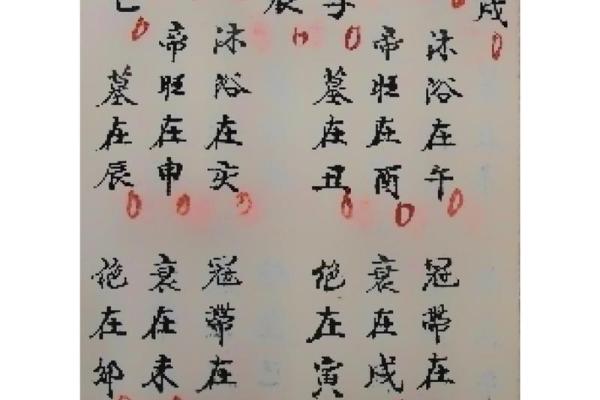 戌
子
沐浴在午
帝旺在酉
墓在丑
沐浴在亥
帝旺在申
墓在辰
冠帶在
衰在戌
絕在寅
冠帶在
衰在未
絕在卯